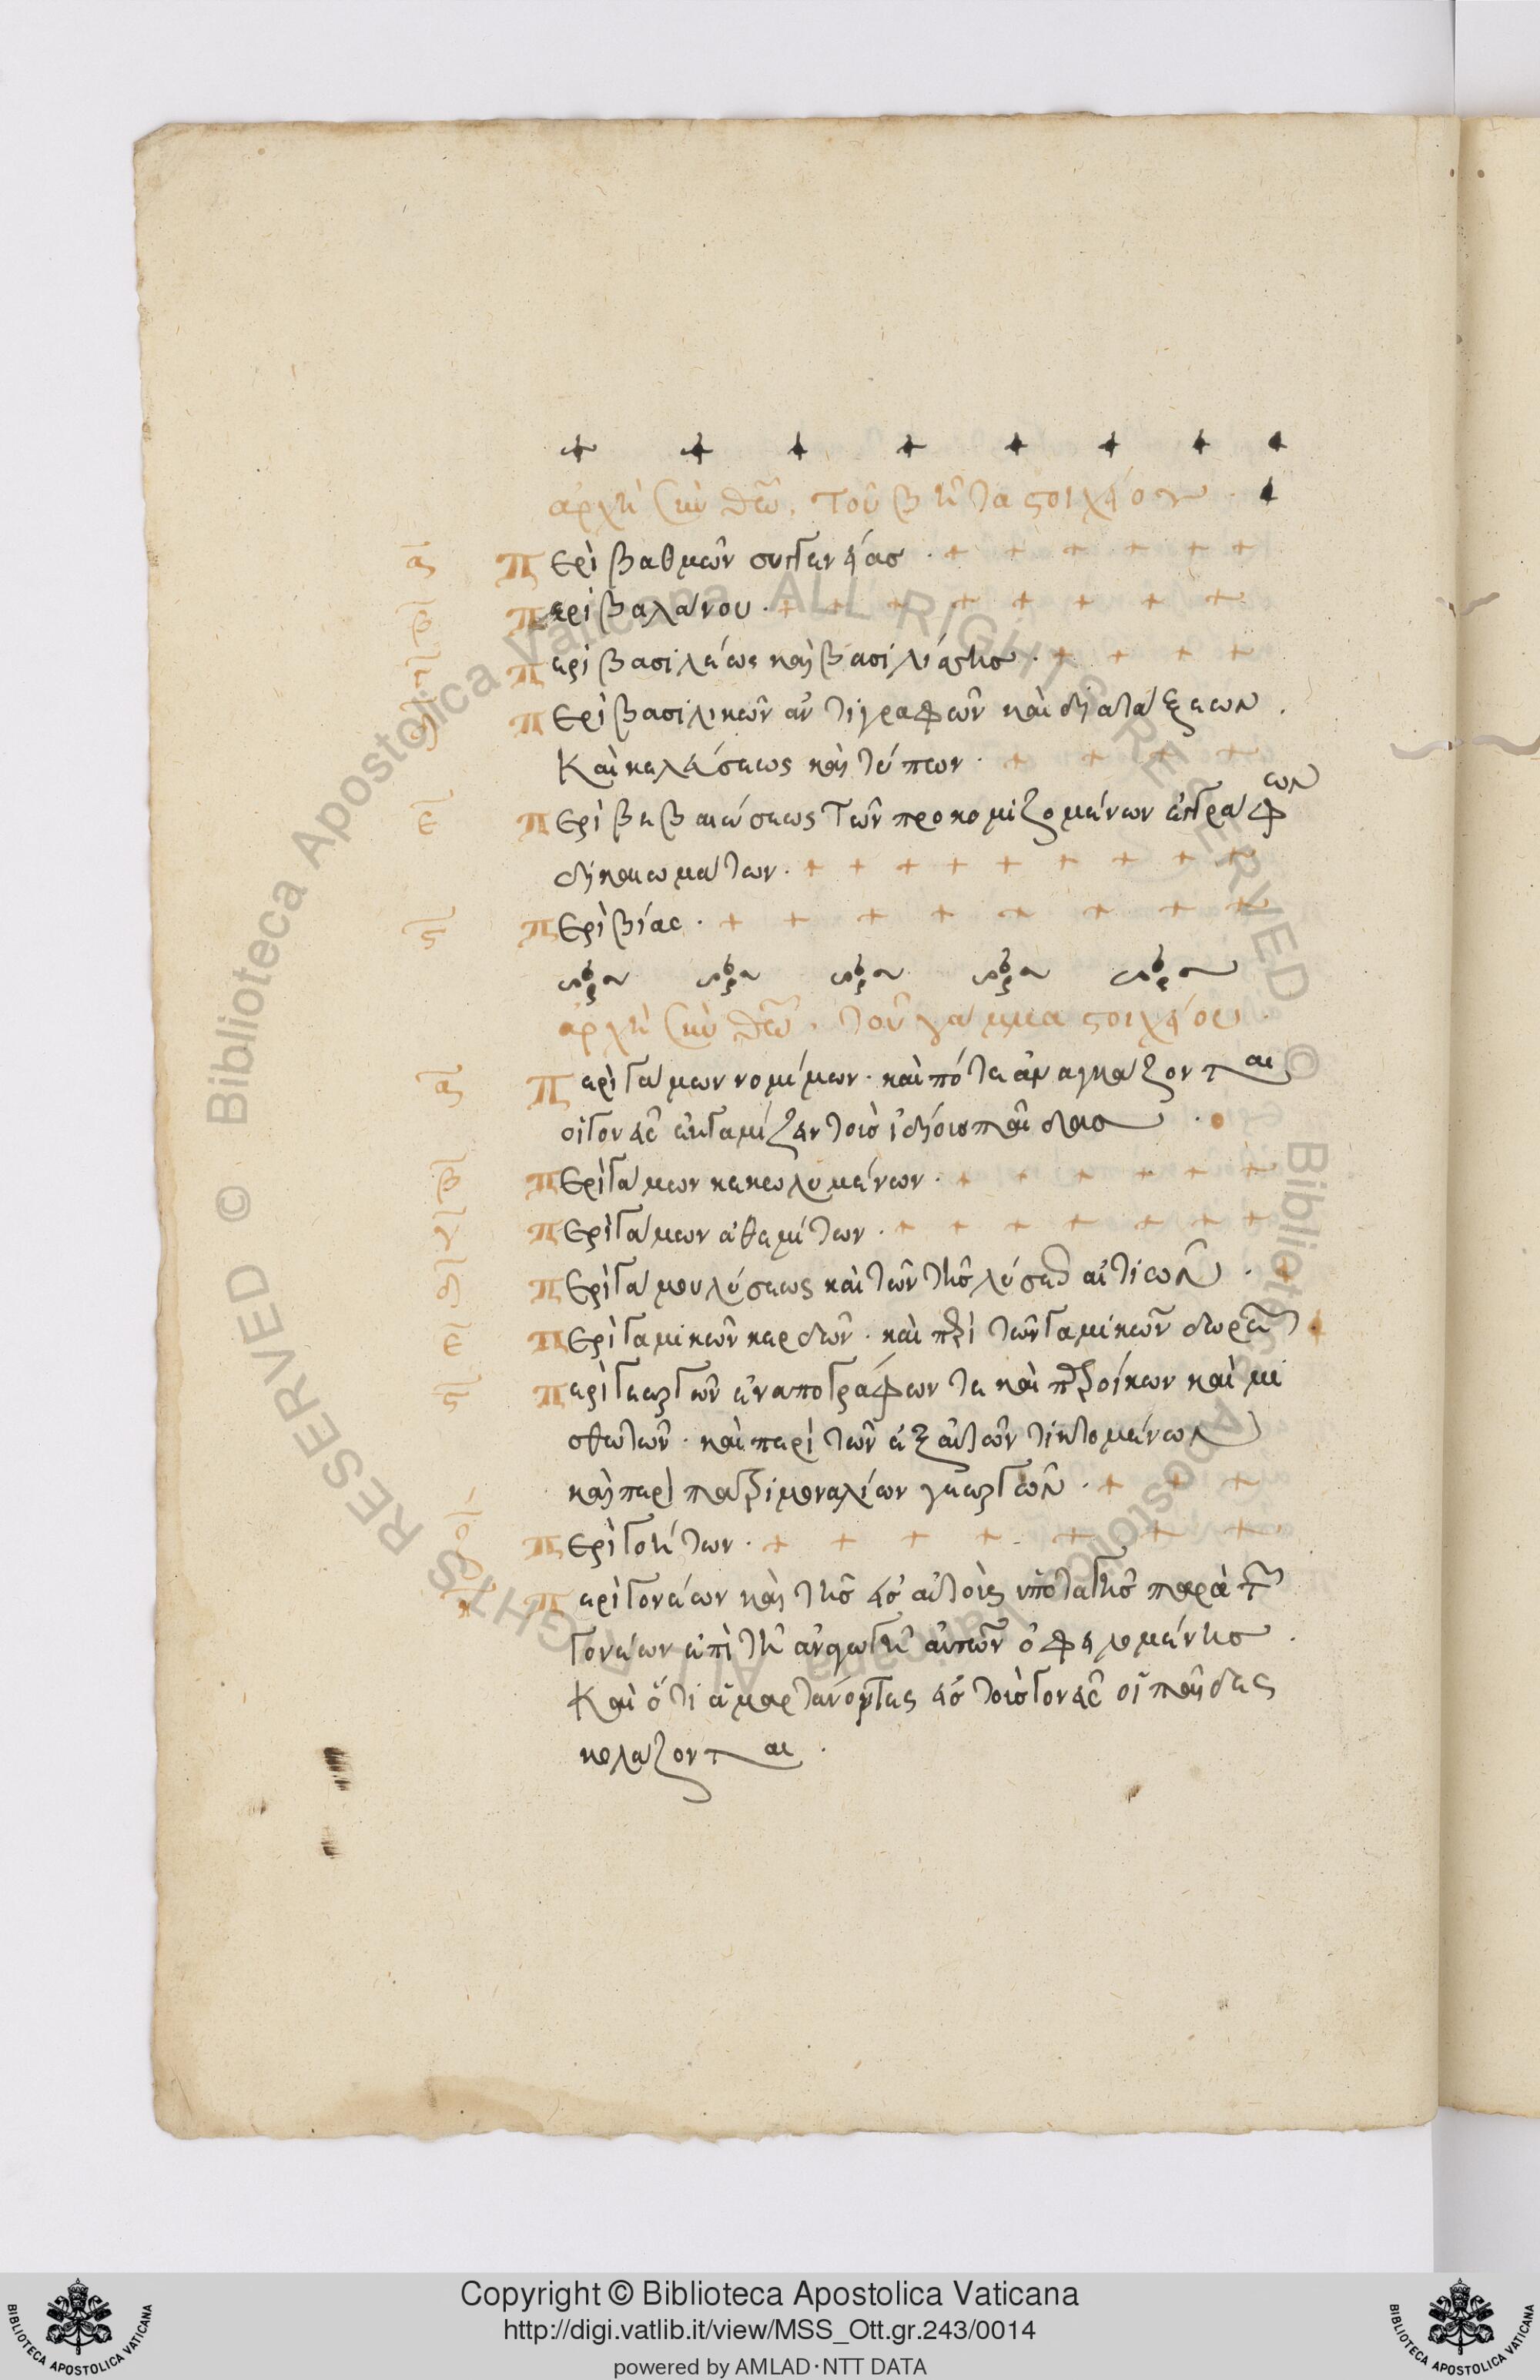 ἀρχὴ σὺν θεῶ, τοῦ βῆτα στοιχείου.
α Περὶ βαθμῶν συγγενείας.
β Περὶ βαλάνου.
γ Περὶ βασιλέως καὶ βασιλείας
δ Περὶ βασιλικῶν ἀντιγραφῶν καὶ διατάξεων.
Καὶ κελεύσεως καὶ τύπων.
ε Περὶ βεβαιώσεως τῶν προκομιζομένων ἐγγράφων
δικαιωμάτων.
ϛ Περὶ βίας.
ἀρχὴ σὺν θεῶ, τοῦ γάμμα στοιχείου.
α Περὶ γάμων νομίμων. καὶ πότε ἀναγκάζονται
οἱ γονεῖς ἐκγαμίζειν τοὺς ἰδίους παῖδας
β Περὶ γάμων κεκωλυμένων.
γ Περὶ γάμων ἀθεμίτων.
δ Περὶ γάμου λύσεως καὶ τῶν τῆς λύσεως αἰτιῶν.
ε Περὶ γαμικῶν κερδῶν. καὶ περὶ τῶν γαμικῶν δωρεῶν
ϛ Περὶ γεωργῶν ἐναπογράφων τε καὶ παροίκων καὶ μι
σθωτῶν. καὶ περὶ τῶν ἐξ αὐτῶν τικτομένων
καὶ περὶ πατριμοναλίων γεωργῶν.
ζ Περὶ γοήτων.
η Περὶ γονέων καὶ τῆς εἰς αὐτοὺς ὑποταγῆς παρὰ τῶν
γονέων ἐπὶ τῆ ἀγωγῆ αὐτῶν ὀφειλομένης.
Καὶ ὅτι ἁμαρτάνοντες εἰς τοὺς γονεῖς οἱ παῖδες
κολάζονται.
Copyright © Biblioteca Apostolica Vaticana
http://digi.vatlib.it/view/MSS_Ott.gr.243/0014
powered by AMLAD·NTT DATA
BIBLIOTECA APOSTOLICA VATICANA
BIBLIOTECA APOSTOLICA VATICANA
© Biblioteca Apostolica Vaticana ALL RIGHTS RESERVED
© Biblioteca Apostolica Vaticana ALL RIGHTS RESERVED